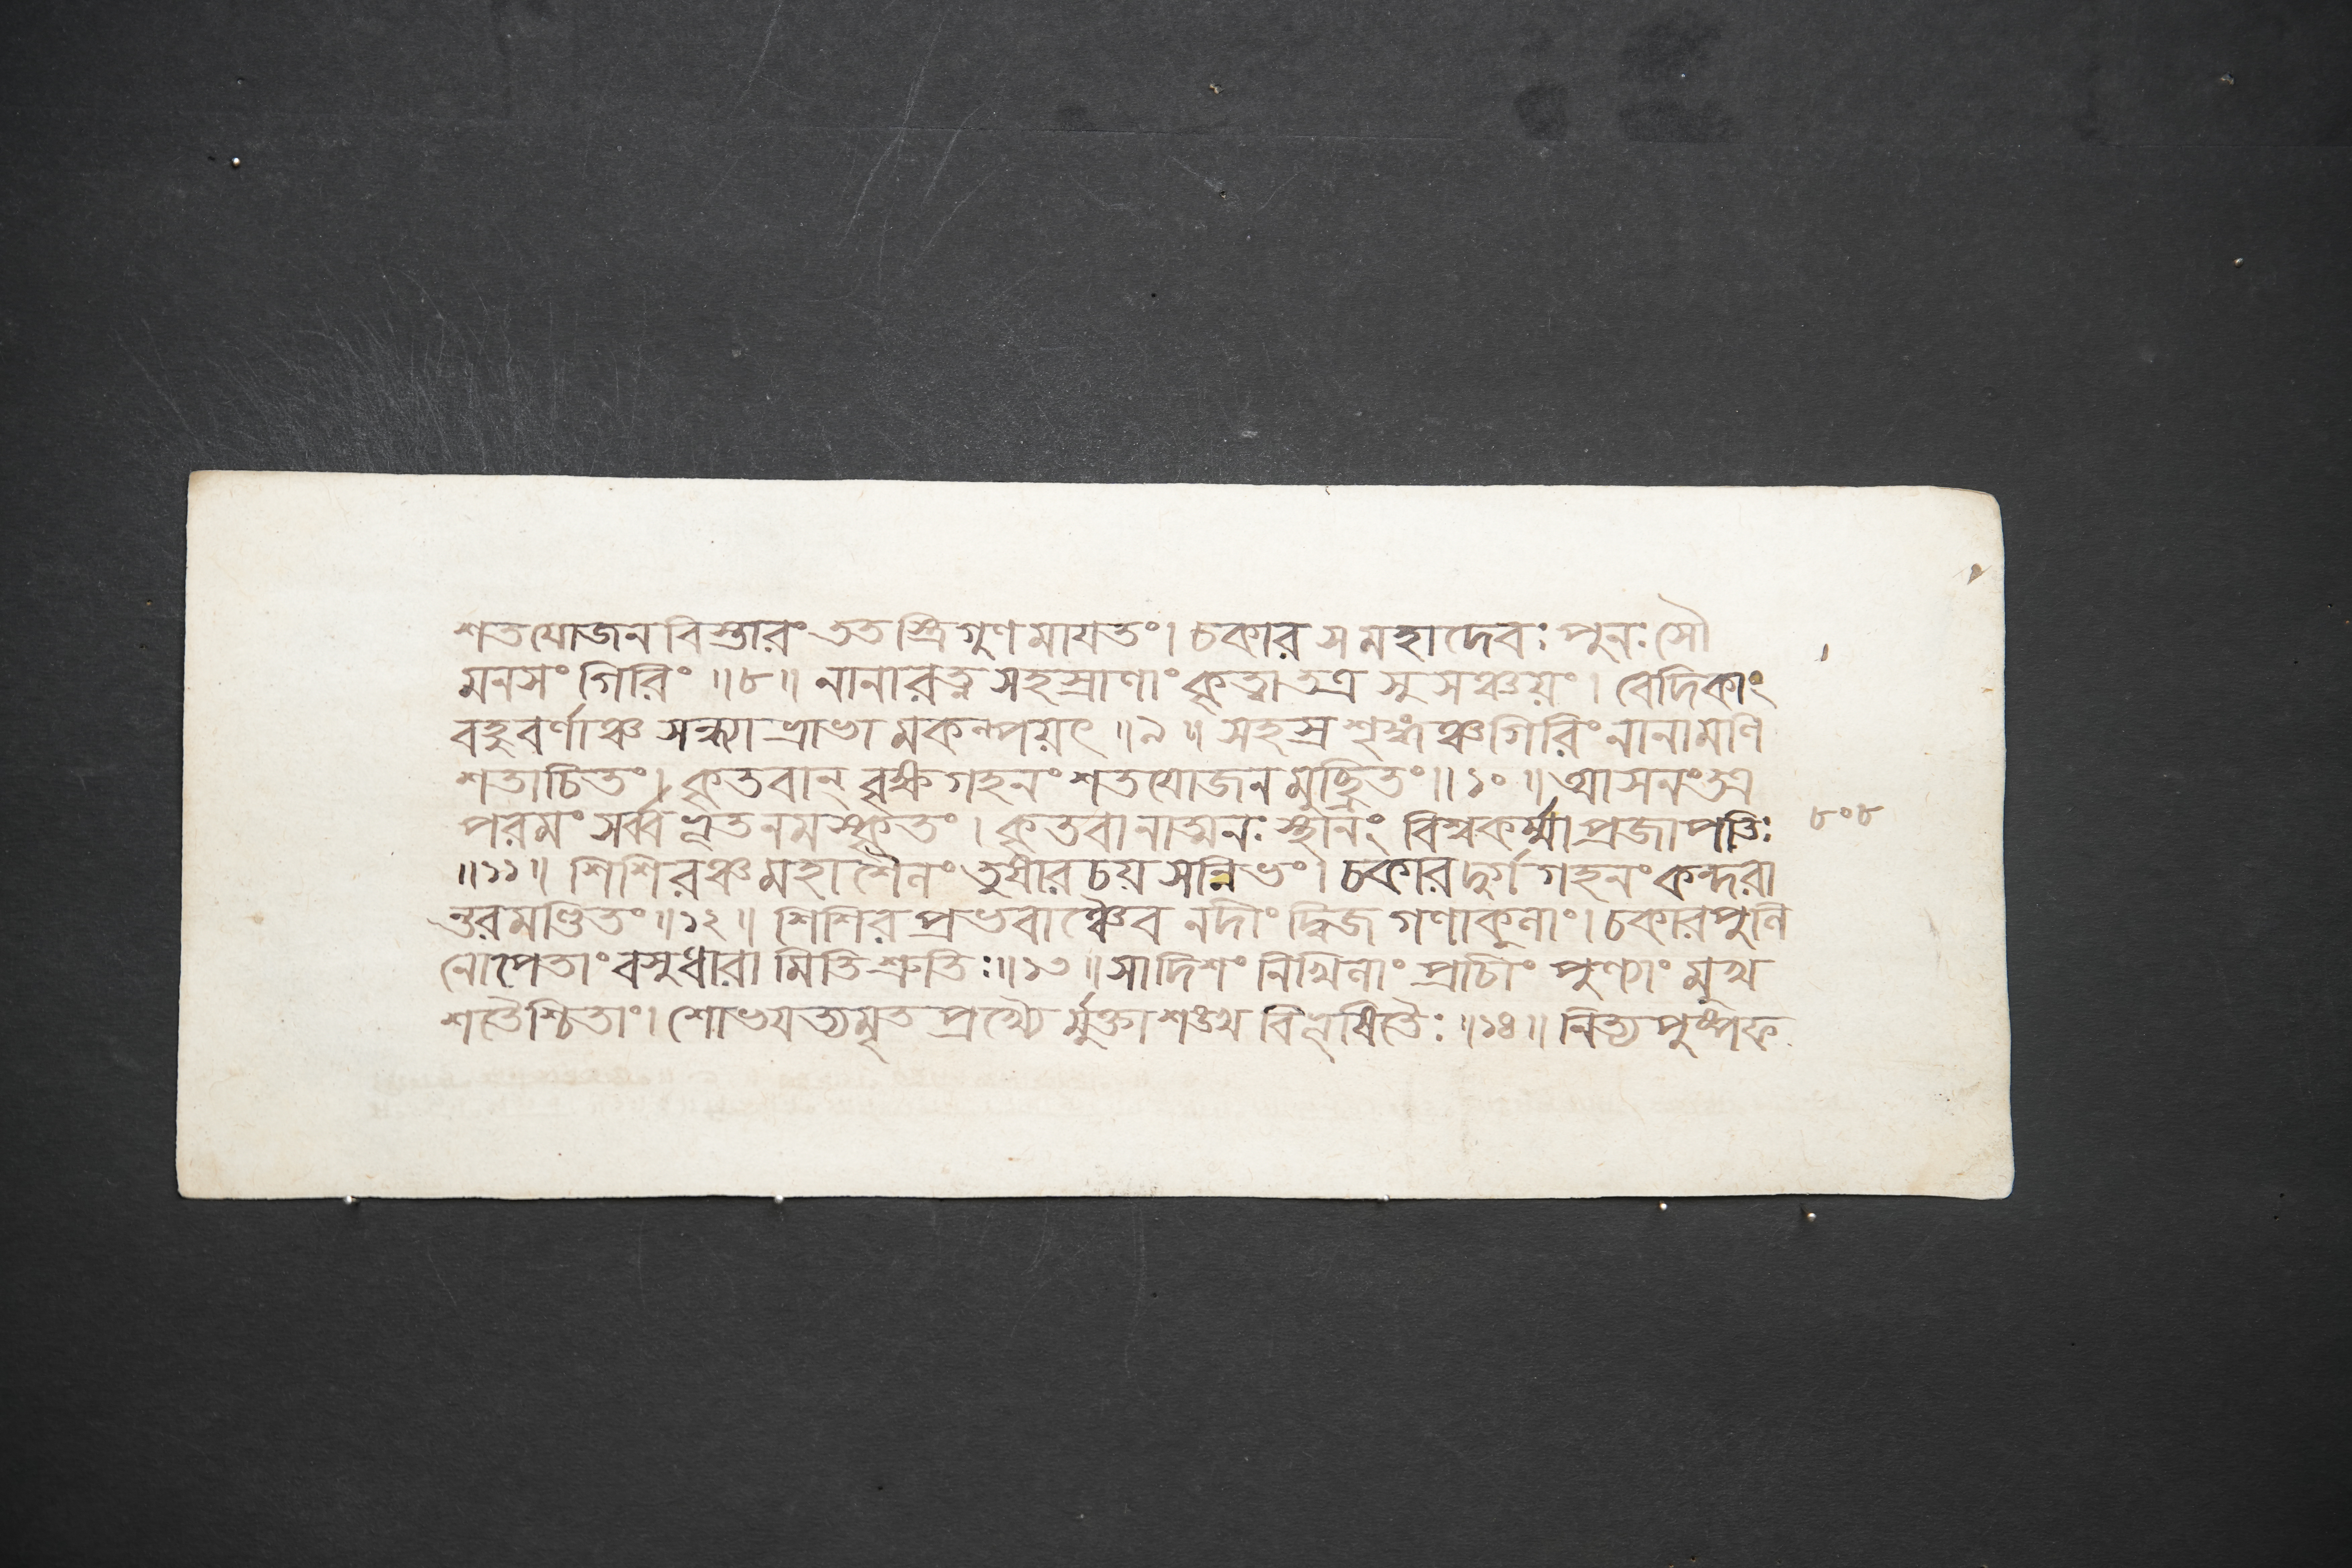 শতযোজনবিস্তারং ততস্ত্রিগুণমাযতং। চকার স মহাদেবঃ পুনঃ সৌ
মনসং গিরিং ॥৮॥ নানারত্নসহস্রাণাং কৃত্বা তত্র সুসঞ্চয়ং। বেদিকাং
বহুবর্ণাঞ্চ সন্ধ্যাভ্রাভামকল্পয়ৎ ॥৯॥ সহস্রশৃঙ্গঞ্চ গিরিং নানামণি
শতাচিতং। কৃতবান্ বৃক্ষগহনং শতযোজনমুচ্ছ্রিতং॥১০॥ আসনং তত্র
পরমং সর্ব্বভূতনমস্কৃতং। কৃতবানাত্মনঃ স্থানং বিশ্বকর্ম্মা প্রজাপতিঃ ৮০৮
॥১১॥ শিশিরঞ্চ মহাশৈলং তুষারচয়সন্নিভং। চকার দুর্গগহনং কন্দরা
ন্তরমণ্ডিতং॥১২॥ শিশিরপ্রভবাঞ্চৈব নদীং দ্বিজগণাকুলাং। চকার পুলি
নোপেতাং বসুধারামিতি শ্রুতিঃ॥১৩॥ সা দিশং নিখিলাং প্রাচীং পুণ্যাং মুখ
শতৈশ্চিতাং। শোভযত্যমৃতপ্রখ্যৈর্মুক্তাশঙ্খবিভূষিতৈঃ॥১৪॥ নিত্যপুষ্পফ